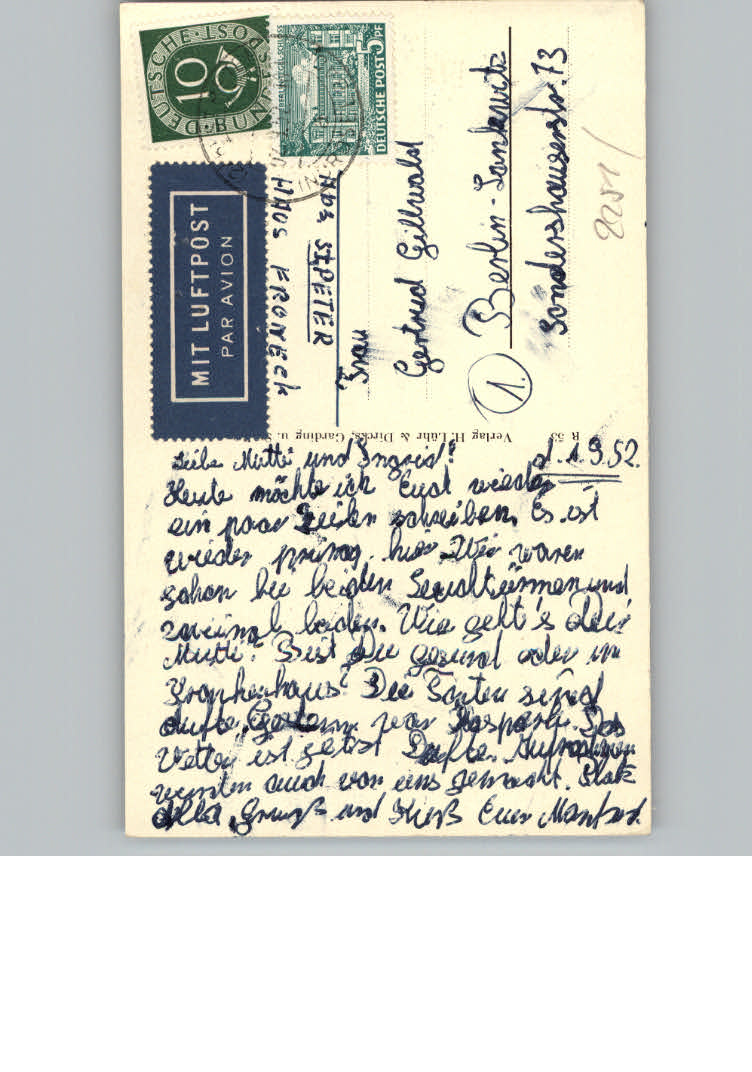 DEUTSCHE BUNDESPOST
10
DEUTSCHE POST 5 PF
MIT LUFTPOST
PAR AVION
ST. PETER
HAUS FRONECK
Frau
Gertrud Gillwald
1.
Berlin-Lankwitz
Sondershauserstr. 73
2251
R 53 Verlag H. Lühr & Dircks, Garding u.
d. 1.9.52.
Liebe Mutti und Ingrid!
Heute möchte ich Euch wieder
ein paar Zeilen schreiben. Es ist
wieder prima hier. Wir waren
schon bei beiden Leuchtürmen und
zweimal baden. Wie geht's Dir
Mutti? Bist Du gesund oder im
Krankenhaus? Die Torten sind
dufte. Gestern war Kasperle. Das
Wetter ist jetzt Dufte. Aufnahmen
wurden auch von uns gemacht.
Gruß und Kuß Euer Manfred.